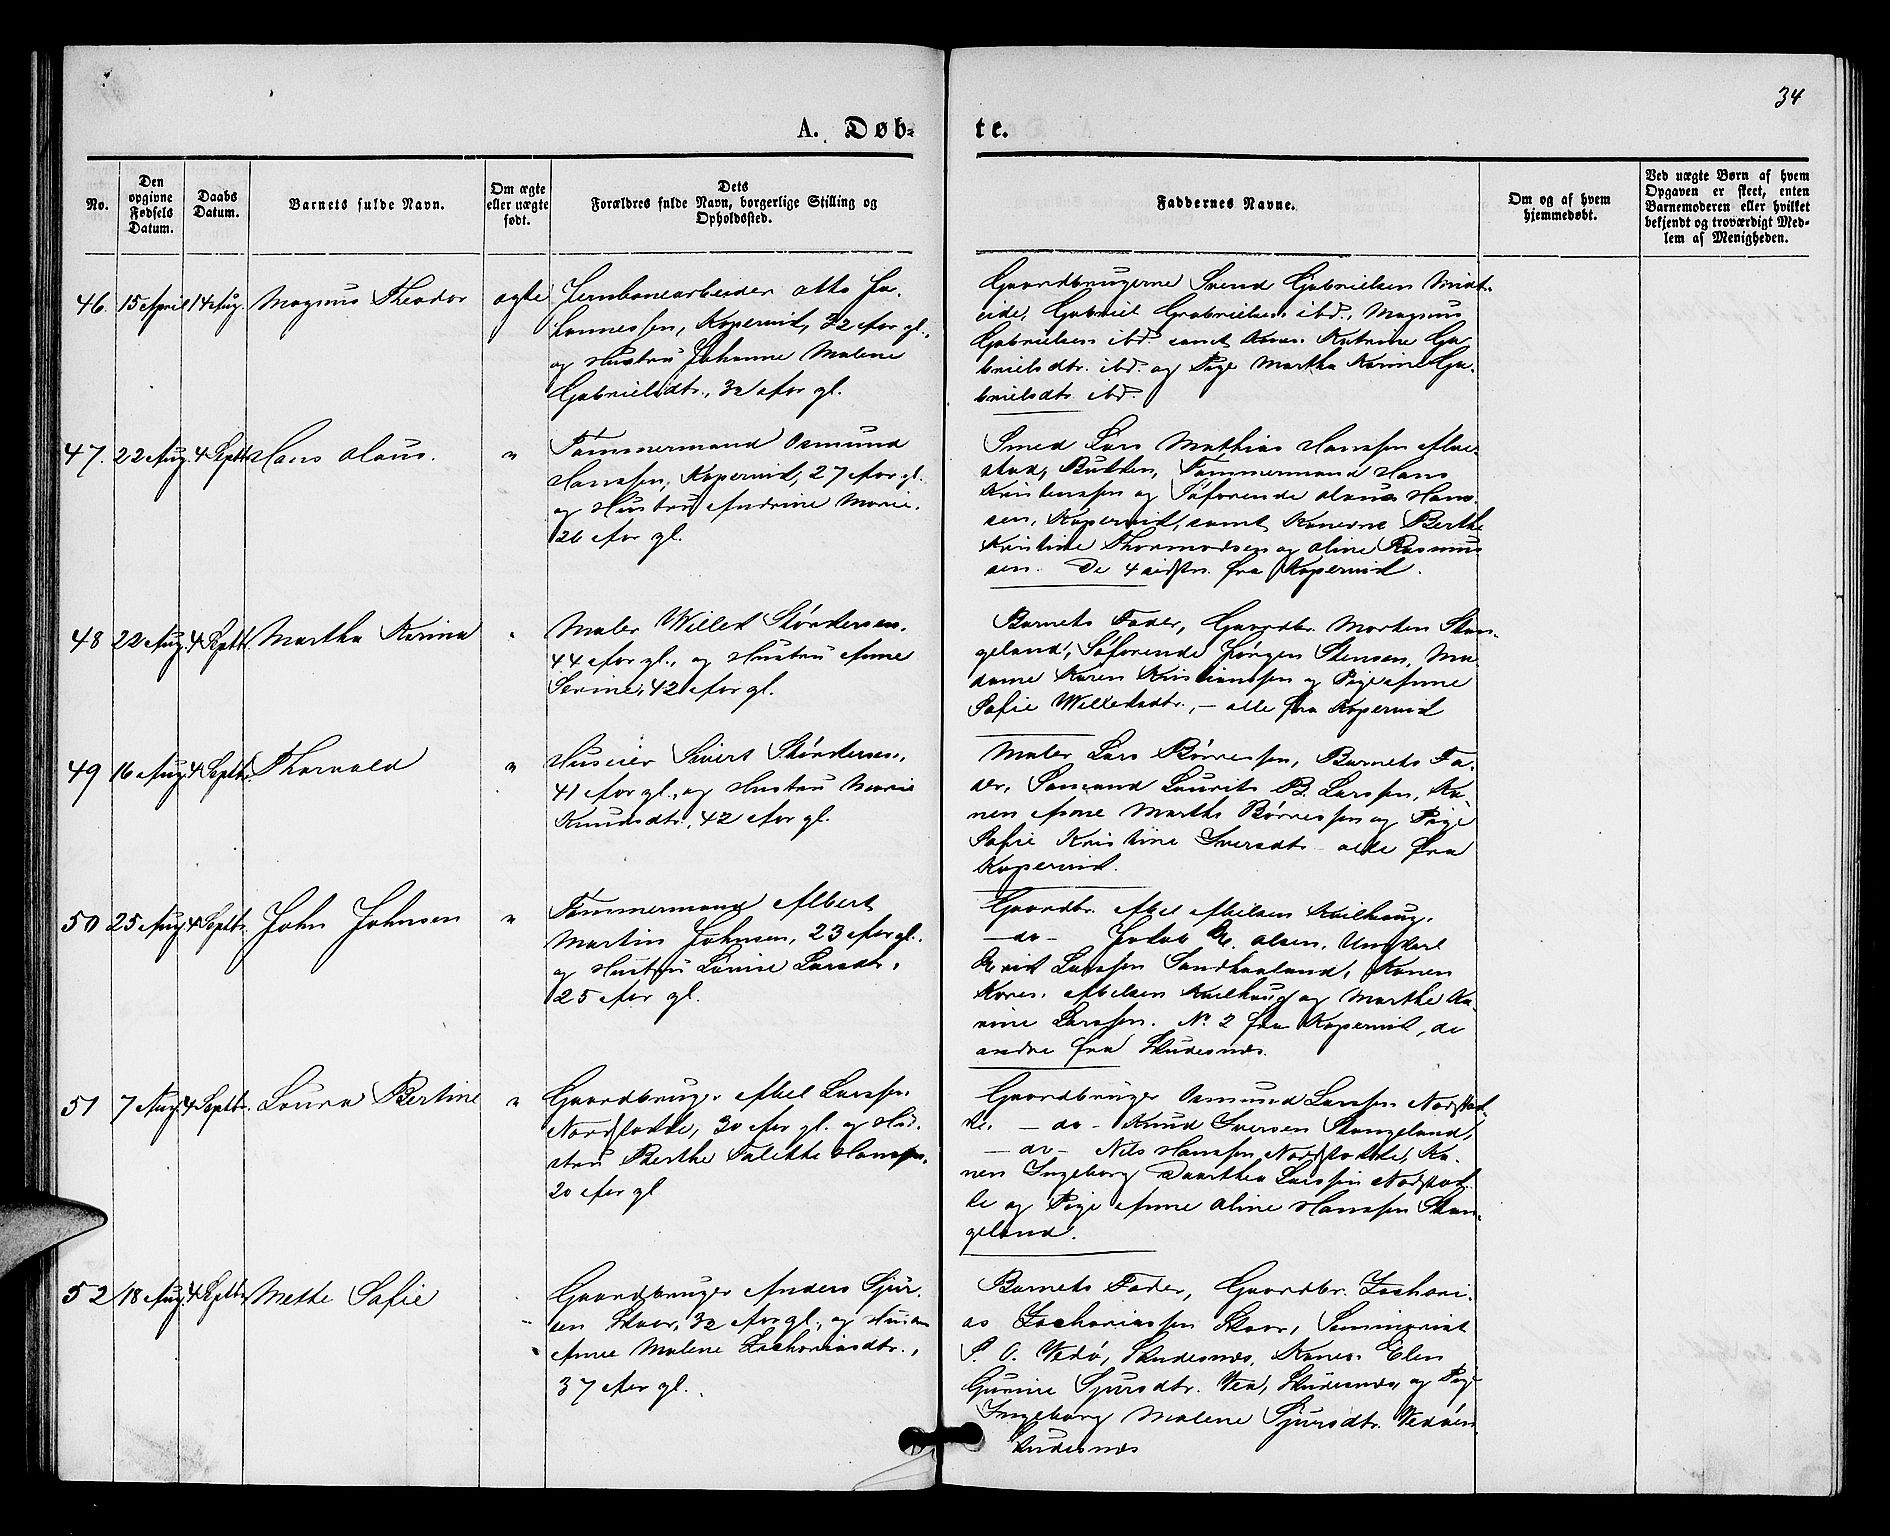 34
A. Døb-
te.
No.
Den
opgivne
Fødsels
Datum.
Daabs
Datum.
Barnets fulde Navn.
Om ægte
eller uægte
født.
Dets
Forældres fulde Navn, borgerlige Stilling og
Opholdssted.
Faddernes Navne.
Om og af hvem
hjemmedøbt.
Ved uægte Børn af hvem
Opgaven er skeet, enten
Barnemoderen eller hvilket
bekjendt og troværdigt Med-
lem af Menigheden.
46. 15 April 14 Aug. Magnus Theodor ægte
Jernbanearbeider Otto Jo-
hannessen, Kopervik, 32 Aar gl.,
og Hustru Johanne Malene
Gabrielsdtr., 32 Aar gl.
Gaardbrugerne Svend Gabrielsen
eide, Gabriel Gabrielsen ibd., Magnus
Gabrielsen ibd. samt Kone Katrine Ga-
brielsdtr. ibd. og Pige Martha Karine Ga-
brielsdtr. ibd.
47. 22 Aug. 4 Septbr. Hans Olaus. "
Tømmermand Osmund
Hanssen, Kopervik, 27 Aar gl.
og Hustru Andrine Marie.
26 Aar gl.
Smed Lars Mathias Hanssen
Tømmermand Hans
Kristenssen og Søfarende Olaus Hans-
sen, Kopervik, samt Konerne Berthe
Kristine Thormodsen og Oline Rasmus-
sen. De 4 sidstn. fra Kopervik.
48 22 Aug. 4 Septbr. Martha Karina "
Maler Willed Størdersen.
44 Aar gl., og Hustru Anne
Serine, 42 Aar gl.
Barnets Fader, Gaardbr. Morten Stan-
geland, Søfarende Jørgen Stensen, Ma-
dame Karen Kristianssen og Pige Anne
Sofie Willedsdtr., – alle fra Kopervik
49 16 Aug. 4 Septbr. Thorvald "
Huseier Sivert Størdersen,
41 Aar gl., og Hustru Marie
Knudsdtr., 42 Aar gl.
Maler Lars Børressen, Barnets Fa-
der, Sømand Laurits B. Larssen, Ko-
nen Anne Marthe Børressen og Pige
Sofie Kristine Iversdtr. alle fra
Kopervik.
50 25 Aug. 4 Septbr. John Johnsen "
Tømmermand Albert
Martin Johnsen, 23 Aar gl.
og Hustru Lovise Larsdtr.,
25 Aar gl.
Gaardbr. Abel Abelsen Kvilhaug.
– do – Jakob E. Olsen, Ungkarl
Larssen Sandhaaland, Konen
Karen Abelsen Kvilhaug og Marthe Ka-
rine Larssen. No. 2 fra Kopervik, de
andre fra Skudesnæs.
51 7 Aug. 4 Septbr. Laura Bertine "
Gaardbruger Abel Larssen
Nordstokke, 30 Aar gl. og Hu-
stru Berthe Talette Hanssen.
20 Aar gl
Gaardbruger Osmund Larssen Nordstok-
ke, – do – Knud Iversen Stangeland,
– do – Nils Hanssen Nordstokke, Ko-
nen Ingeborg Daarthea Larssen Nordstok-
ke og Pige Anne Oline Hanssen Stan-
geland.
52 18 Aug. 4 Septbr. Mette Sofie
Gaardbruger Anders Sjur-
sen Skaar, 32 Aar gl., og Hustru
Anne Malene Zachariasdtr.,
37 Aar gl.
Barnets Fader, Gaardbr. Zachari-
as Zachariassen Skaar, Seminarist
S. O. Vedø, Skudesnæs, Konen Elen
Gurine Sjursdtr. Vea, Skudesnæs, og Pige
Ingeborg Malene Sjursdtr. Vedøen
Skudesnæs